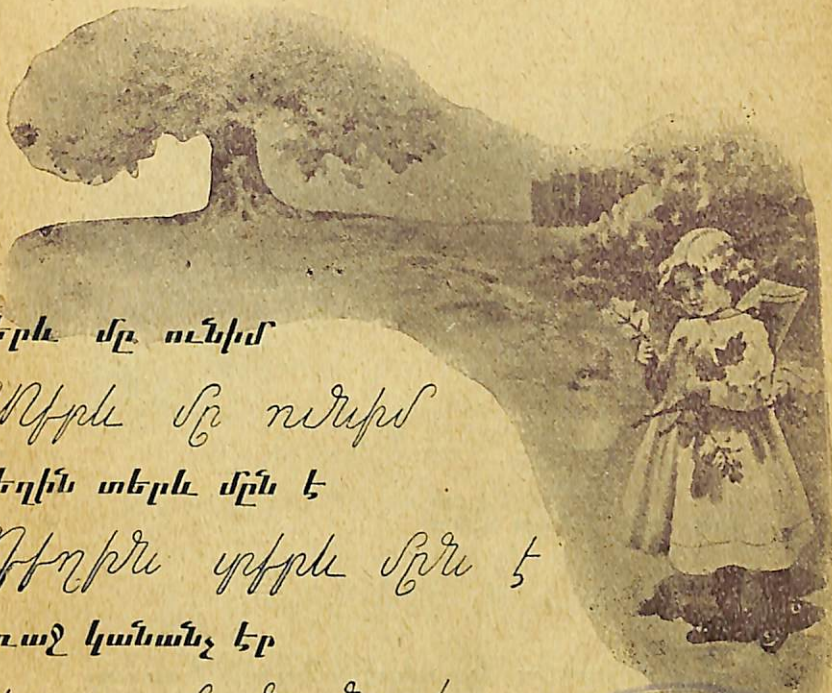 երև մը ունիմ
Տերև մը ունիմ
եղին տերև մըն է
Դեղին տերև մըն է
ռաջ կանանչ էր